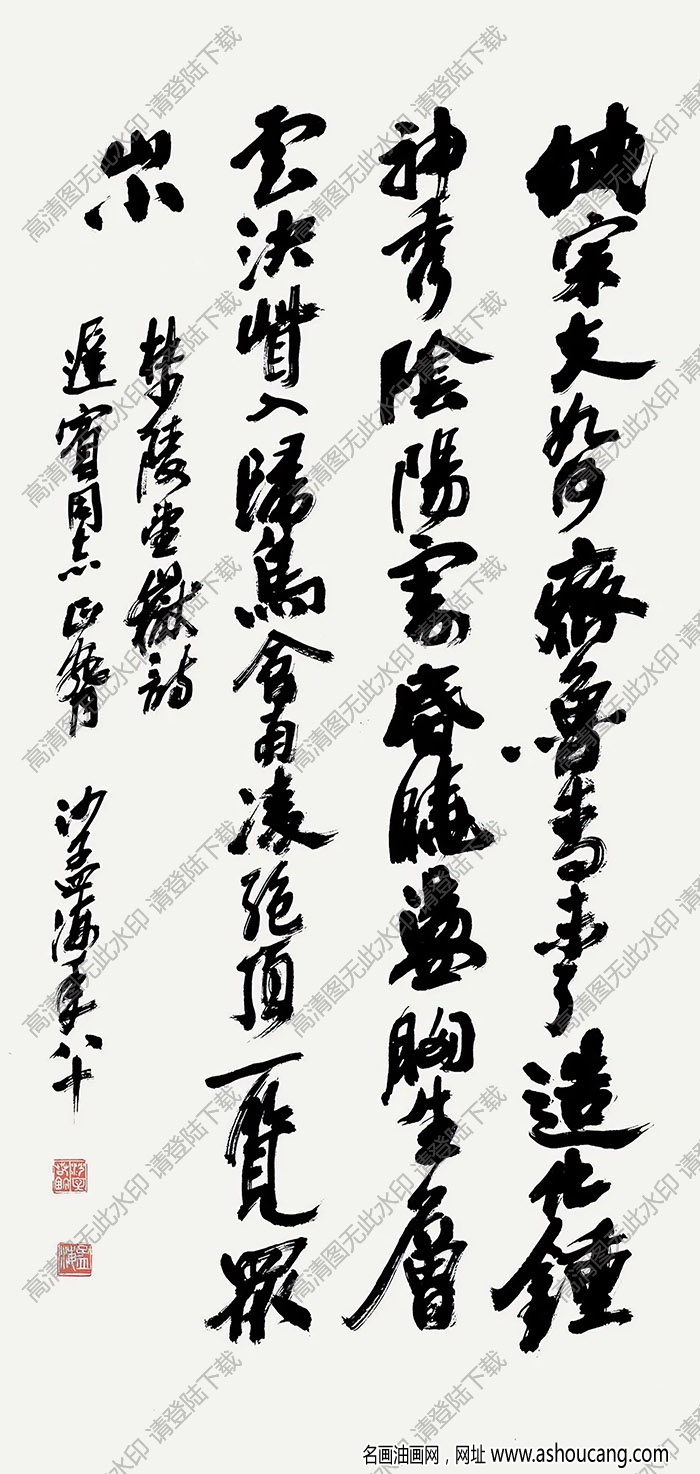 岱宗夫如何齊魯青未了造化鍾
神秀陰陽割昏曉盪胸生層
雲決眥入歸鳥會當凌絕頂一覽眾
山
杜陵望嶽詩
同志正 沙孟海年八十
孟海
高清图无此水印 请登陆下载
名画油画网，网址 www.ashoucang.com